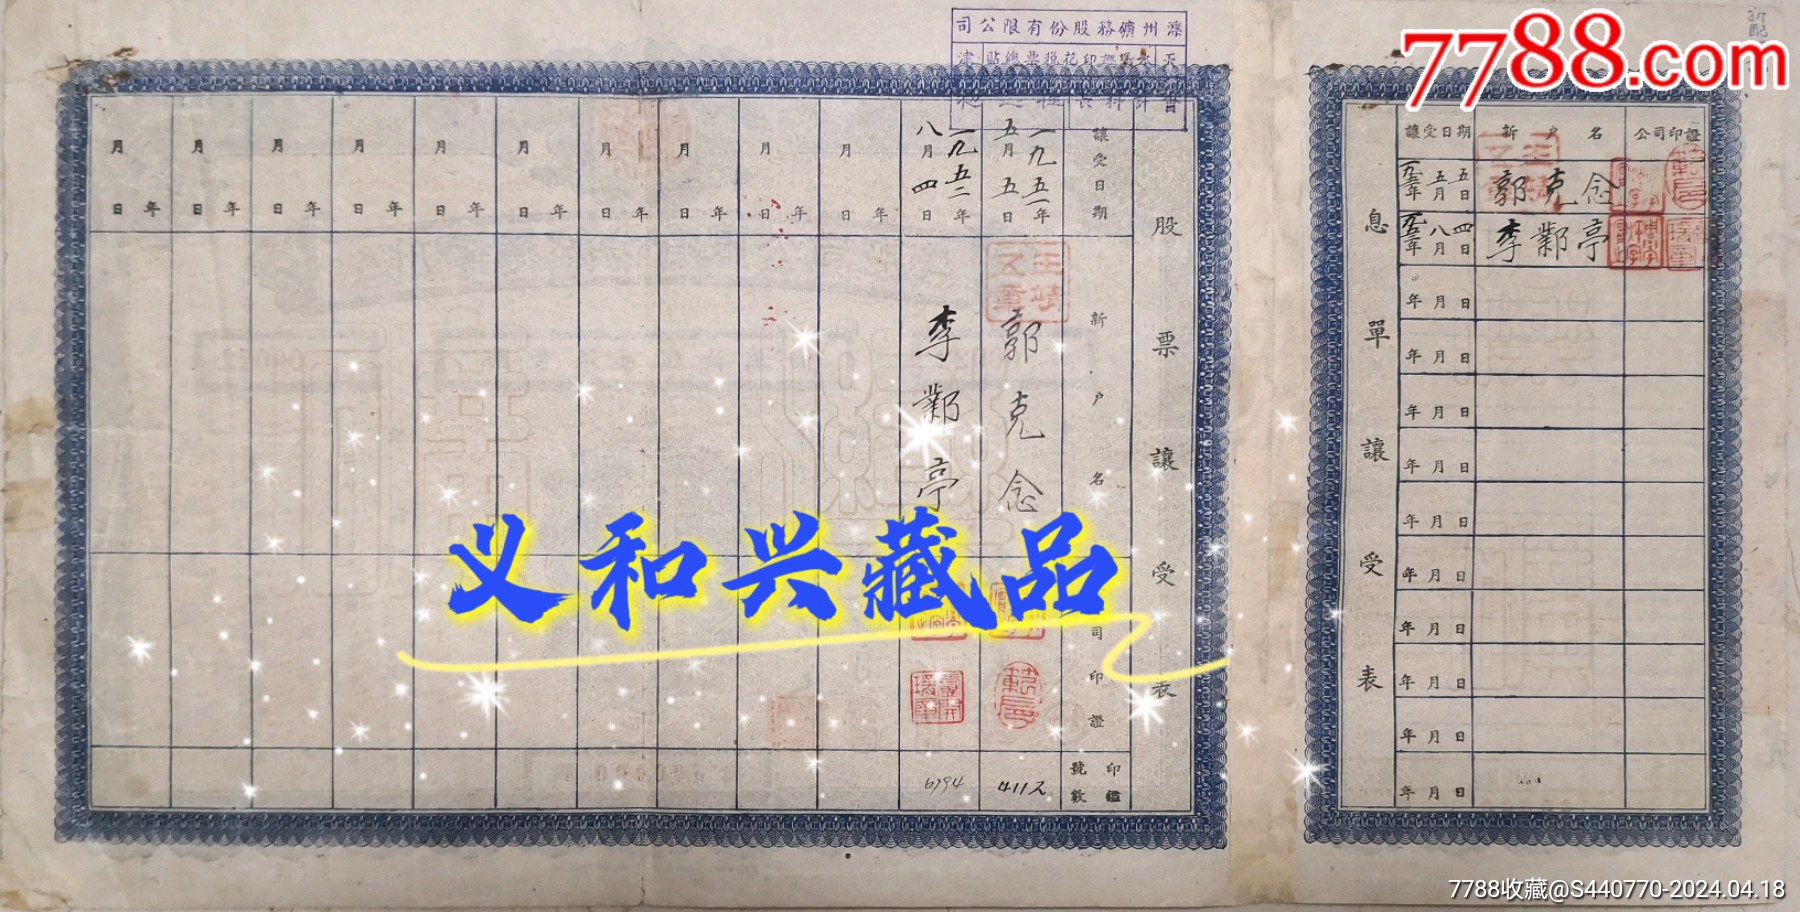 7788.com
灤州礦務股份有限公司
讓受日期
新戶名
印證
印鑑號數
股票讓受表
一九五一年五月五日
郭克念
4112
一九五二年八月四日
李鄴亭
6794
年月日
年月日
年月日
年月日
年月日
年月日
年月日
年月日
年月日
年月日
息單讓受表
讓受日期 新戶名 公司印證
五月五日 郭克念
八月四日 李鄴亭
年月日
年月日
年月日
年月日
年月日
年月日
年月日
年月日
年月日
年月日
义和兴藏品
7788收藏@S440770-2024.04.18